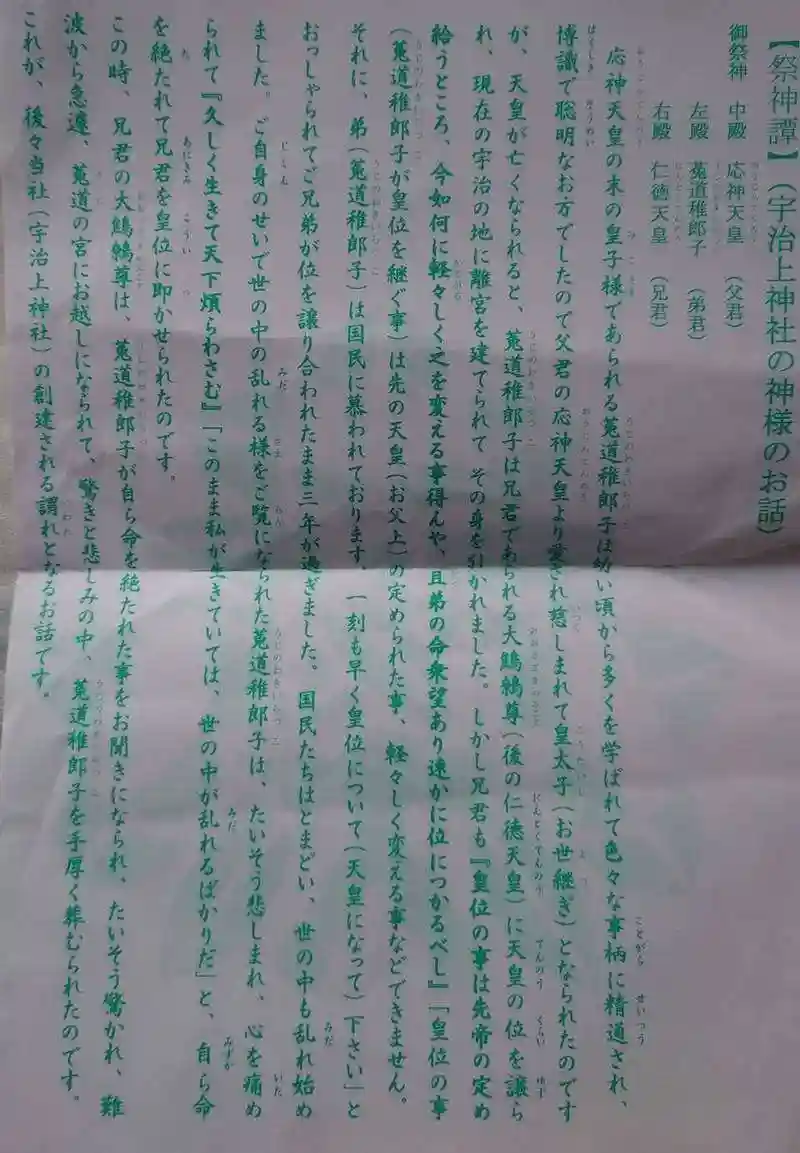 【祭神譚】(宇治上神社の神様のお話)
御祭神 中殿 応神天皇 (父君)
左殿 菟道稚郎子 (弟君)
右殿 仁徳天皇 (兄君)
応神天皇の末の皇子様であられる菟道稚郎子は幼い頃から多くを学ばれて色々な事柄に精通され、
博識で聡明なお方でしたので父君の応神天皇より愛され慈しまれて皇太子(お世継ぎ)となられたのです
が、天皇が亡くなられると、菟道稚郎子は兄君であられる大鷦鷯尊(後の仁徳天皇)に天皇の位を譲ら
れ、現在の宇治の地に離宮を建てられて その身を引かれました。しかし兄君も『皇位の事は先帝の定め
給うところ、今如何に軽々しく之を変える事得んや、且弟の命衆望あり速かに位につかるべし』「皇位の事
(菟道稚郎子が皇位を継ぐ事)は先の天皇(お父上)の定められた事、軽々しく変える事などできません。
それに、弟(菟道稚郎子)は国民に慕われております。一刻も早く皇位について(天皇になって)下さい」と
おっしゃられてご兄弟が位を譲り合われたまま三年が過ぎました。国民たちはとまどい、世の中も乱れ始め
ました。ご自身のせいで世の中の乱れる様をご覧になられた菟道稚郎子は、たいそう悲しまれ、心を痛め
られて『久しく生きて天下煩らわさむ』「このまま私が生きていては、世の中が乱れるばかりだ」と、自ら命
を絶たれて兄君を皇位に即かせられたのです。
この時、兄君の大鷦鷯尊は、菟道稚郎子が自ら命を絶たれた事をお聞きになられ、たいそう驚かれ、難
波から急遽、菟道の宮にお越しになられて、驚きと悲しみの中、菟道稚郎子を手厚く葬むられたのです。
これが、後々当社(宇治上神社)の創建される謂れとなるお話です。